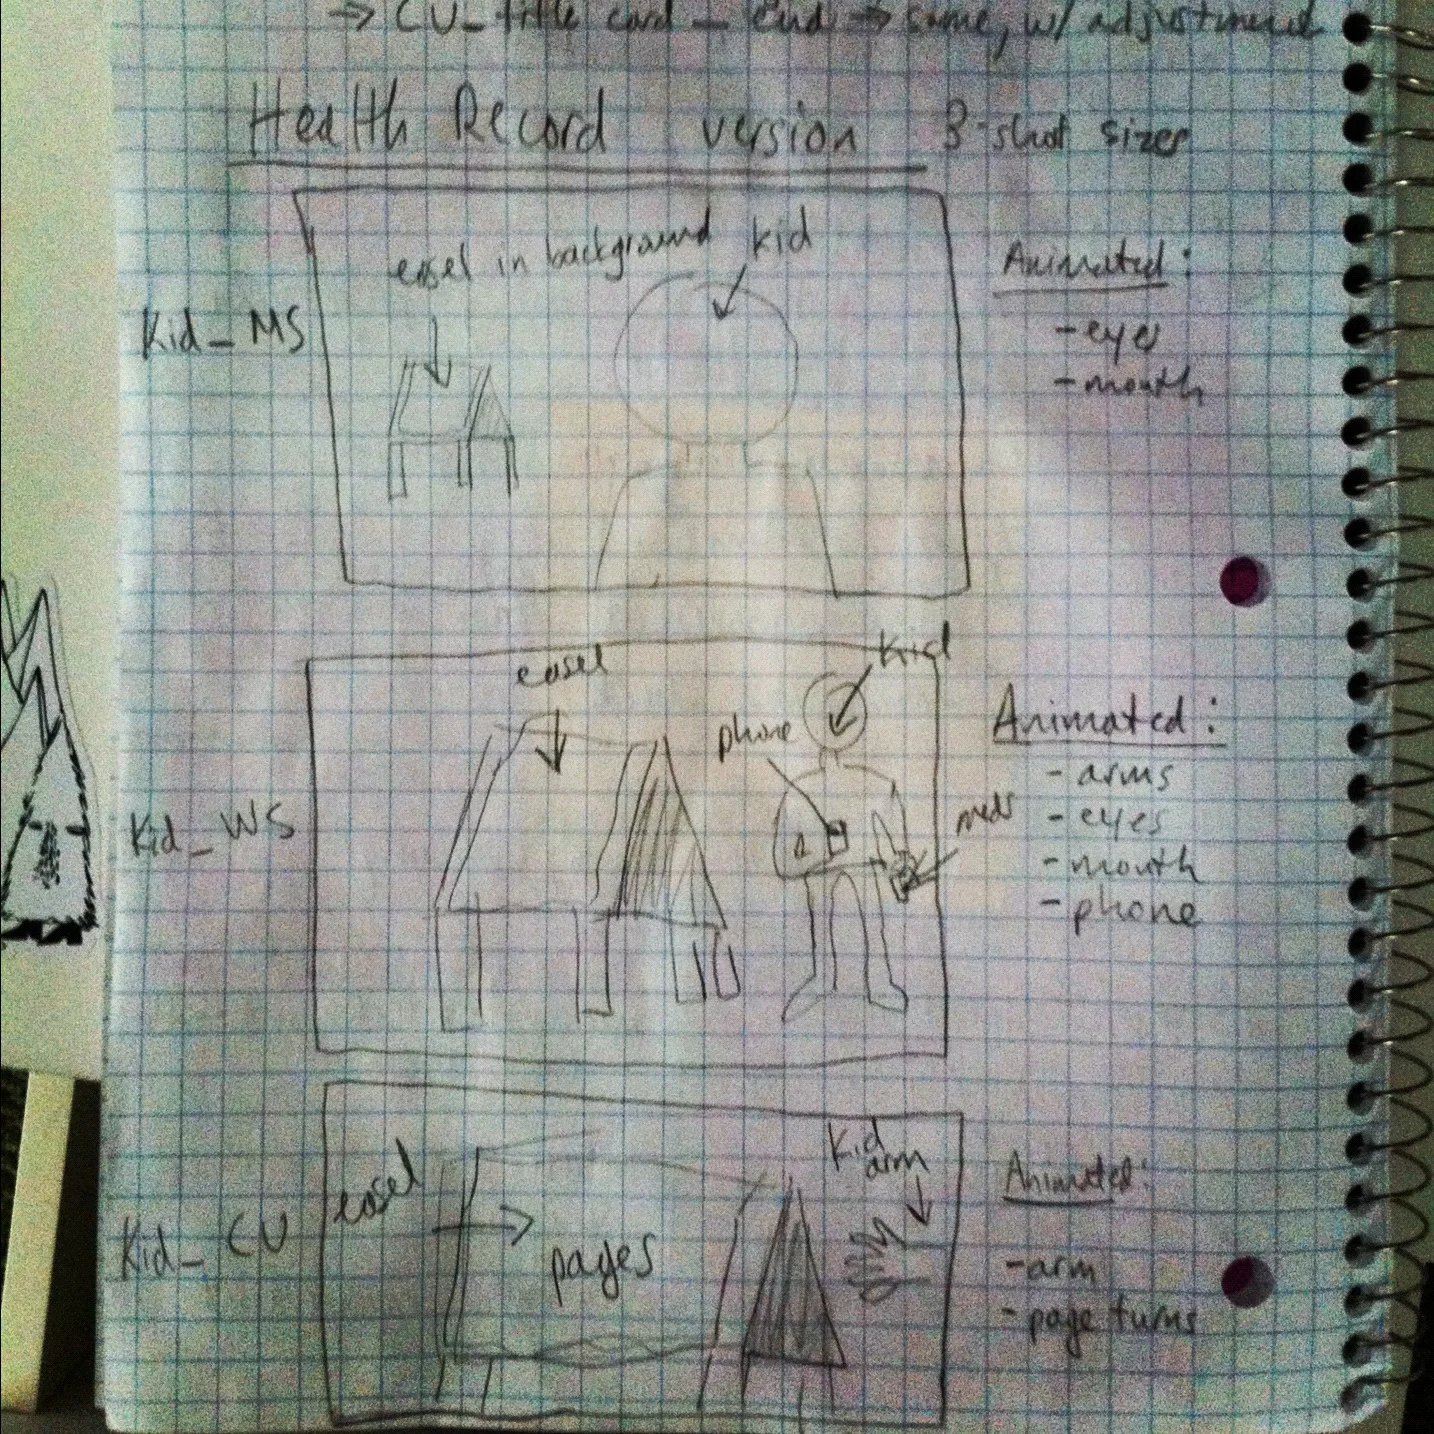 → CU_title card — end → same, w/ adjustment
Health Record version 3-shot sizes
easel in background
kid
Kid_MS
Animated:
-eyes
-mouth
easel
kid
phone
meds
Kid_WS
Animated:
- arms
- eyes
- mouth
- phone
Kid arm
easel
pages
Kid_CU
Animated:
-arm
-page turns